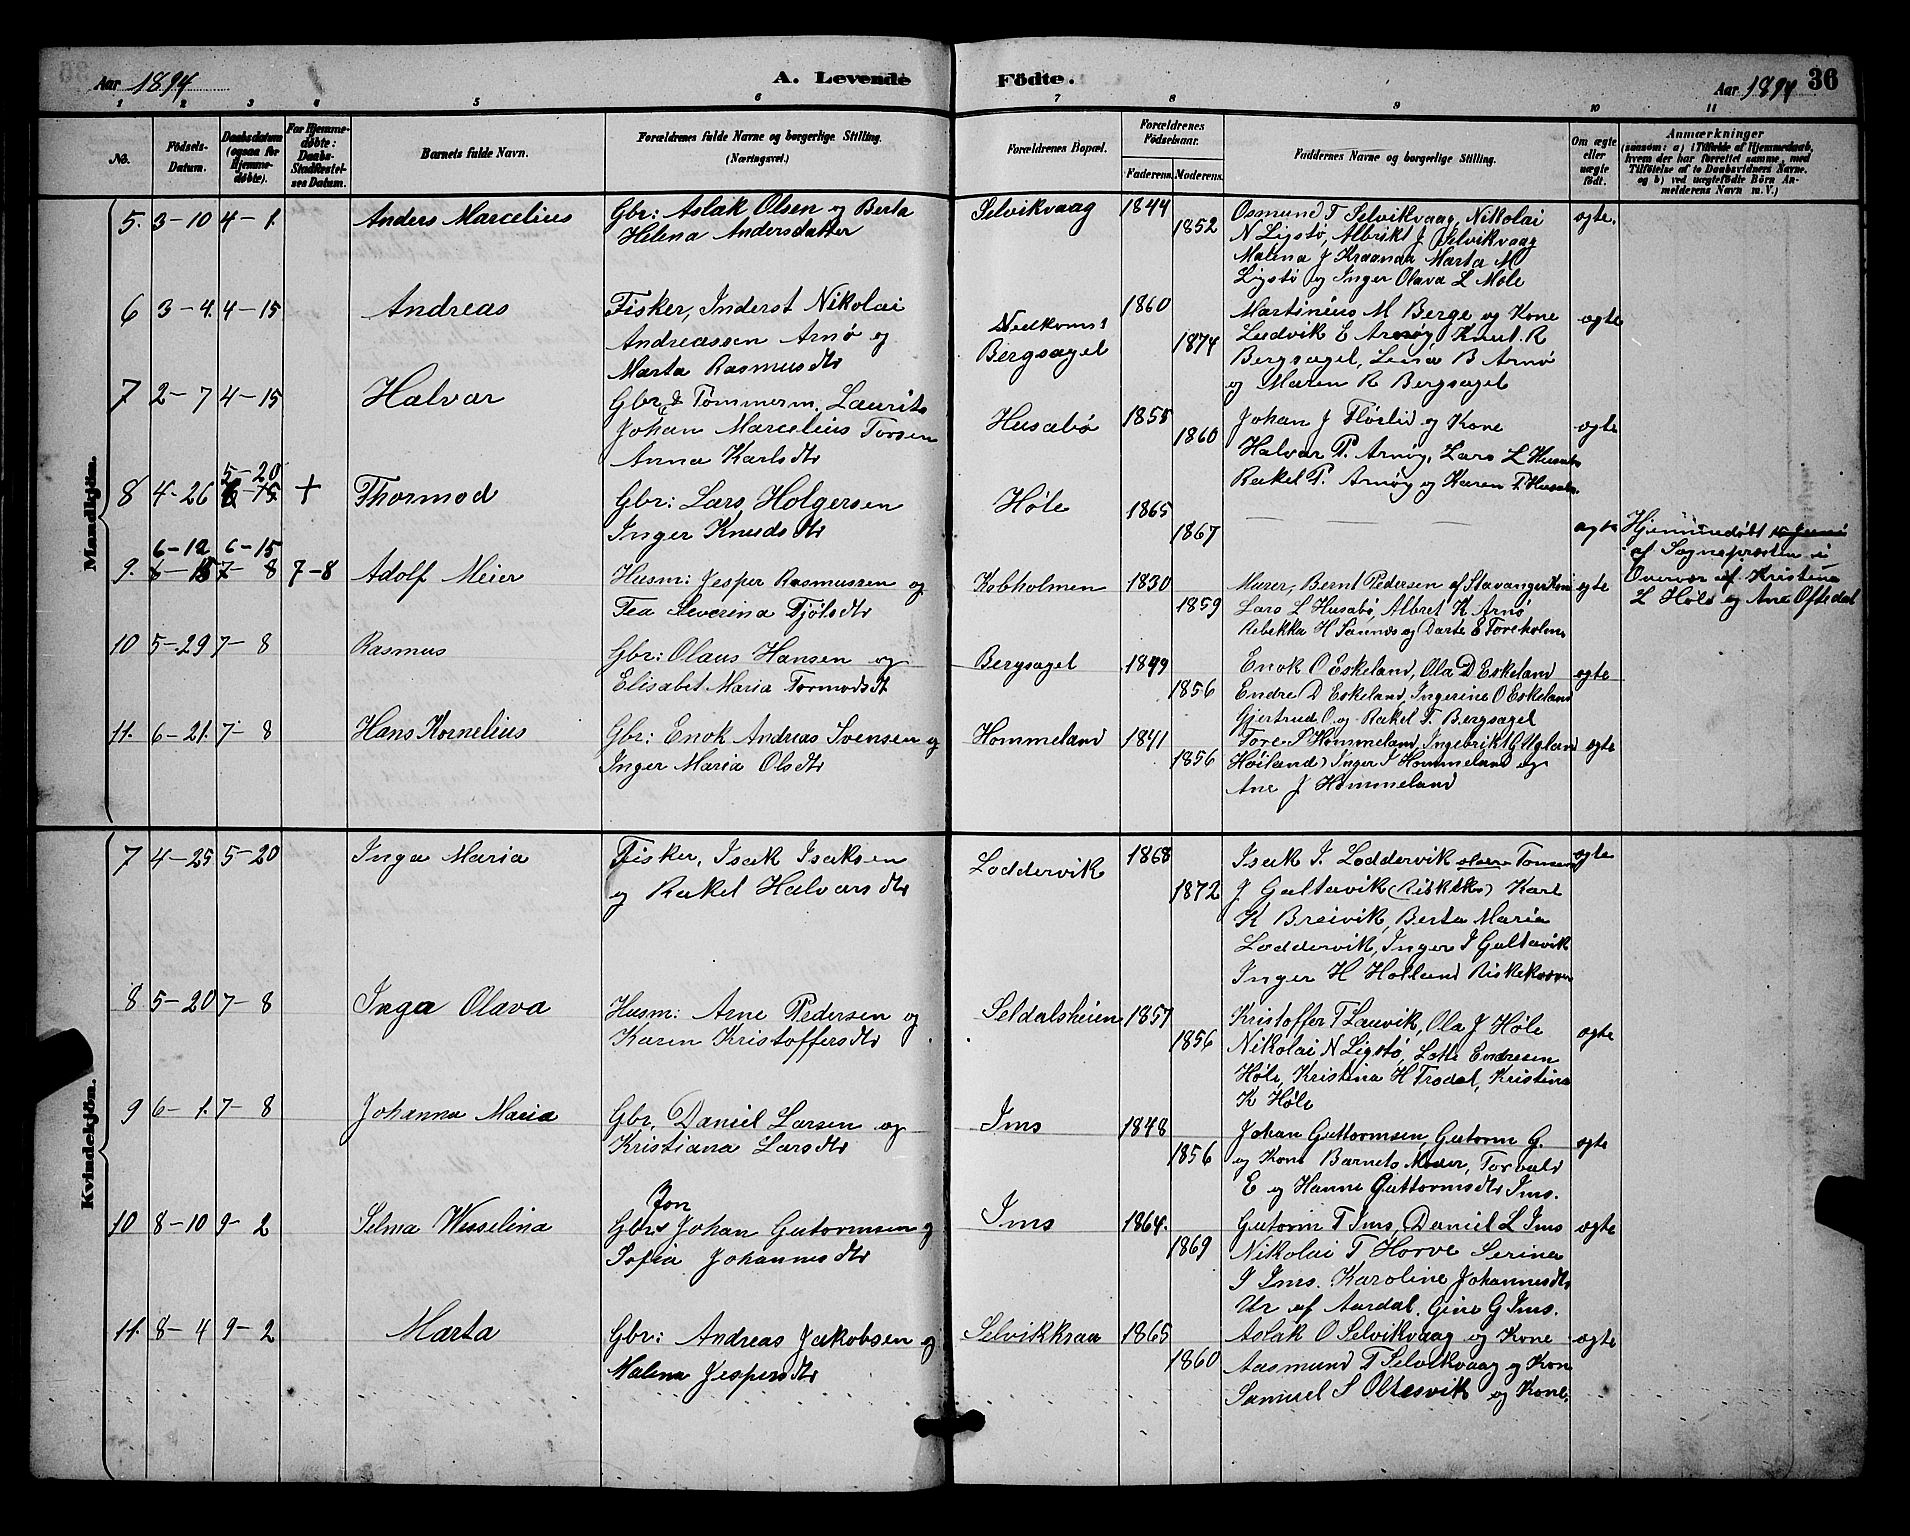 Aar 1894 A. Levende Födte. Aar 1894 36
1 2 3 4 5 6 7 8 9 10 11
No. Födsels-Datum. Daabsdatum (ogsaa for Hjemme-döbte). For Hjemme-döbte: Daabs-Stadfæstel-ses Datum. Barnets fulde Navn. Forældrenes fulde Navne og borgerlige Stilling. (Næringsvei.) Forældrenes Bopæl. Forældrenes Födselsaar. Faderens. Moderens. Faddernes Navne og borgerlige Stilling. Om ægte eller uægte födt. Anmærkninger (saasom: a) i Tilfælde af Hjemmedaab, hvem der har forrettet samme, med Tilföielse af to Daabsvidners Navne, og b) ved uægtefödte Börn An-melderens Navn m. V.)
Mandkjön.
5. 3-10 4-1. Anders Marcelius Gbr: Aslak Olsen og Berta Selvikvaag 1844 Osmund T Selvikvaag, Nikolai ægte.
Helena Andersdatter 1852 N Ligstø, Albrikt J Selvikvaag
Malena J Kraanaa Marta M
Ligstø og Inger Olava L Møle
6 3-4. 4-15 Andreas Fisker, Inderst Nikolai 1860 Martinius M Berge og Kone ægte
Andreassen Arnø og Bergsagel 1874 Ludvik E Arnøy Knut. R
Marta Rasmusdtr Bergsagel, Lena B Arnø
og Maren R Bergsagel
7 2-7 4-15 Halvar Gbr & Tømmerm. Laurits Husabø 1855 Johan J Fløslid og Kone ægte
Johan Marcelius Torsen 1860 Halvar P. Arnøy, Lars L Husabø
Anna Karlsdtr Rakel P. Arnøy og Karen T. Husabø
8 4-26 5-20 + Thormod Gbr: Lars Holgersen Høle 1865
Inger Knudsdtr 1867 ægte Hjemmedøbt
af Sognepresten i
Overvær af Kristina
L Høle og Ane Oftedal
9. 6-12 6-15 7-8 7-8 Adolf Meier Husm: Jesper Rasmussen og Kobholmen 1830 Murer, Bernt Pedersen af Stavanger ægte
Tea Severina Fjølsdtr 1859 Lars L Husabø, Albret K Arnø
Rebekka H Saunes og Darte E Foreholm
10 5-29 7-8 Rasmus Gbr: Olaus Hansen og Bergsagel 1849 Enok O Eskeland, Ola D Eskeland ægte
Elisabet Maria Tormodsdt 1856 Endre D Eskeland, Ingerine O Eskeland
Gjertrud O. og Rakel T. Bergsagel
11. 6-21. 7-8 Hans Kornelius Gbr: Enok Andreas Svensen og Hommeland 1841 Tore S Hommeland, Ingebrikt G Ugland ægte
Inger Maria Olsdtr 1856 Høiland) Inger S Hommeland og
Ane J Hommeland
Kvindekjön.
7 4-25 5-20 Inga Maria Fisker, Isak Isaksen Loddervik 1868 Isak I. Loddervik ægte
og Rakel Halvarsdtr 1872 J Galtavik (Riskeks) Karl
K Breivik, Berta Maria
Loddervik, Inger I Galtavik
Inger H Holland
8 5-20 7-8 Inga Olava Husm: Arne Pedersen og Seldalsheien 1857 Kristoffer T Lauvik, Ola J Høle ægte
Karen Kristoffersdtr 1856 Nikolai N Ligstø, Lotte Endresen
Høle, Kristina H Frodal, Kristina
K Høle
9 6-1. 7-8 Johanna Maria Gbr, Daniel Larsen og Ims 1848 Johan Guttormsen, Gutorm G. ægte
Kristiana Larsdtr 1856 og Kone Barnets Moder, Torvald
E og Hanne Guttormsdtr Ims.
10 8-10 9-2 Selma Wesselina Gbrs Jon Johan Gutormsen og Ims 1864. Gutorm T Ims, Daniel L Ims ægte
Sofia Johannesdtr 1869 Nikolai T Horve Serina
I Ims. Karoline Johannesdtr
Ur af Aardal. Gine G Ims.
11. 8-4 9-2 Marta Gbr: Andreas Jakobsen og Selvikkraa 1865 Aslak O Selvikvaag og Kone ægte
Malena Jespersdtr 1860 Aasmund T Selvikvaag og Kone
Samuel S Oltesvik og Kone.